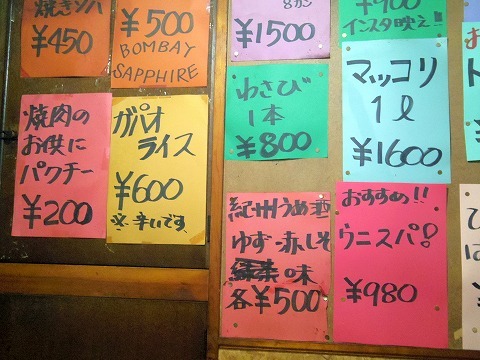 焼きソバ
¥450
¥500
BOMBAY
SAPPHIRE
8カン
¥1500
¥900
インスタ映え!!
焼肉の
お供に
パクチー
¥200
ガパオ
ライス
¥600
※辛いです
わさび
1本
¥800
マッコリ
1ℓ
¥1600
紀州うめ酒
ゆず・赤しそ
味
各¥500
おすすめ!!
ウニスパ!
¥980